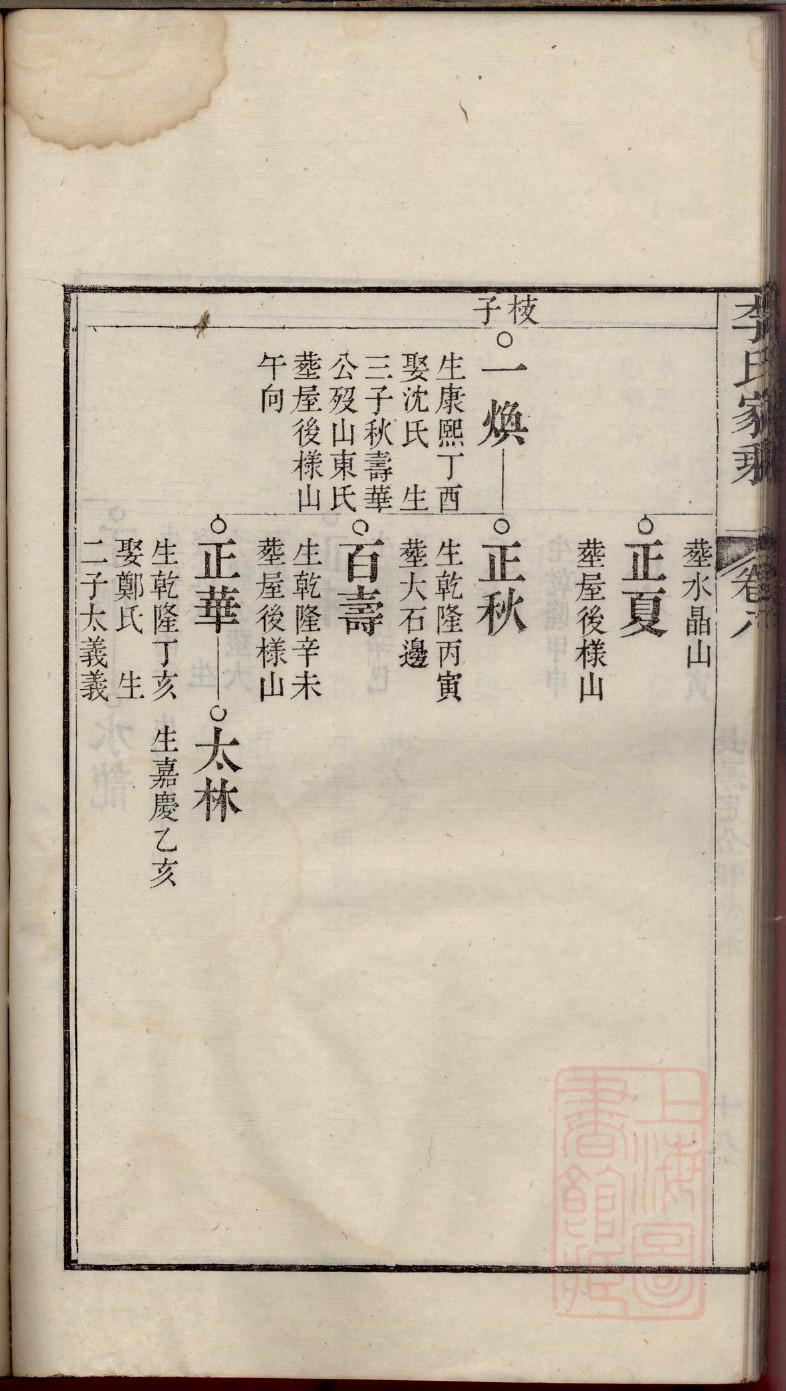 李氏家乘
卷六
塟水晶山
正夏
塟屋後樣山
枝子
一煥
生康熙丁酉
娶沈氏 生
三子秋壽華
公歿山東氏
塟屋後樣山
午向
正秋
生乾隆丙寅
塟大石邊
百壽
生乾隆辛未
塟屋後樣山
正華
生乾隆丁亥
娶鄭氏 生
二子太義義
太林
生嘉慶乙亥
上海圖
書館藏